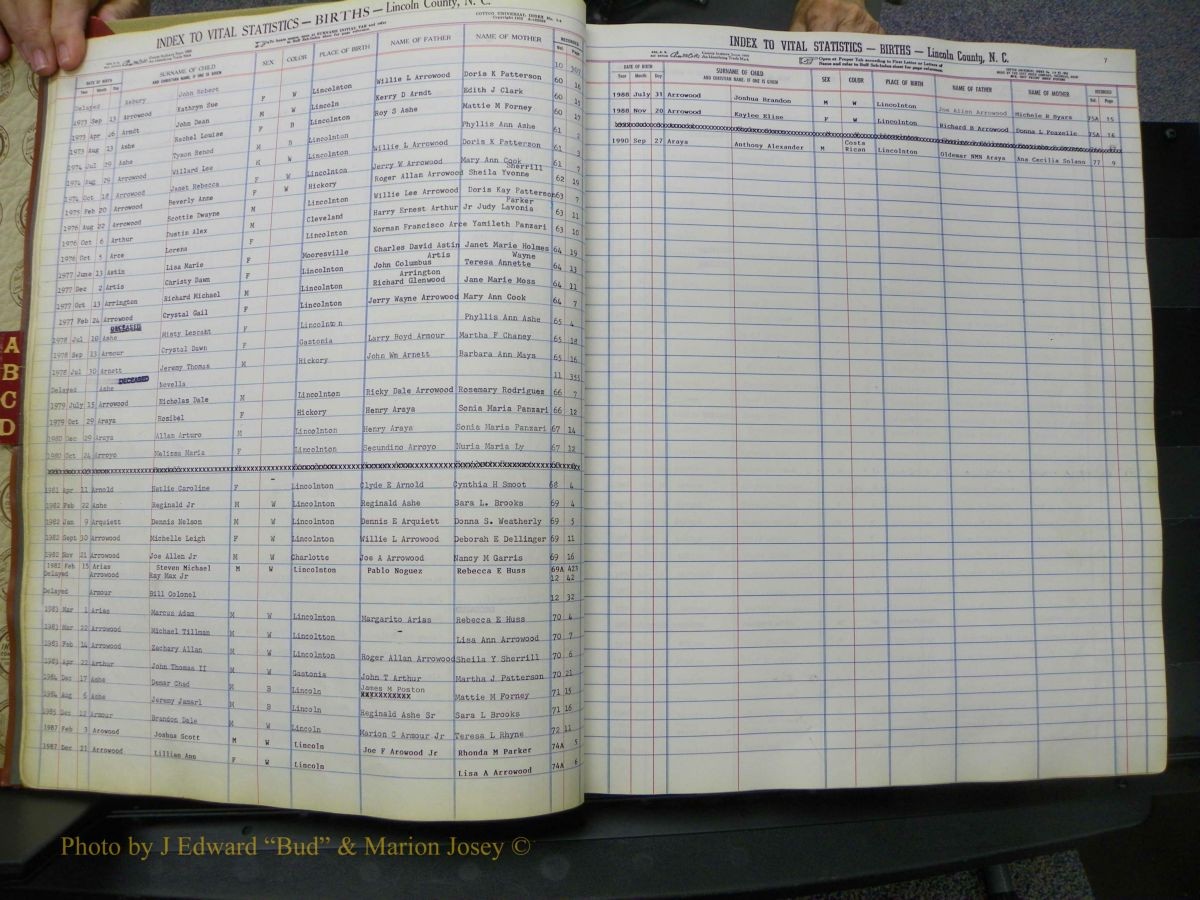 INDEX TO VITAL STATISTICS — BIRTHS — Lincoln County, N. C.
DATE OF BIRTH SURNAME OF CHILD SEX COLOR PLACE OF BIRTH NAME OF FATHER NAME OF MOTHER RECORDED
Year Month Day AND CHRISTIAN NAME IF ONE IS GIVEN Vol. Page
Delayed Asbury John Robert
1973 Sep 13 Arrowood Kathryn Sue F W Lincolnton Willie L Arrowood Doris K Patterson 60 16
1973 Apr 26 Arndt John Dean M W Lincoln Kerry D Arndt Edith J Clark 60 15
1973 Aug 13 Ashe Rachel Louise F B Lincolnton Roy S Ashe Mattie M Forney 60 17
1974 Jul 29 Ashe Tymon Renod M B Lincolnton Phyllis Ann Ashe 61 2
1974 Aug 29 Arrowood Willard Lee M W Lincolnton Willie L Arrowood Doris K Patterson 61 3
1974 Oct 18 Arrowood Janet Rebecca F W Lincolnton Jerry W Arrowood Mary Ann Cook 61 7
1975 Feb 20 Arrowood Beverly Anne F W Hickory Roger Allan Arrowood Sheila Yvonne Sherrill 62 19
1976 Aug 22 Arrowood Scottie Dwayne M Lincolnton Willie Lee Arrowood Doris Kay Patterson 63 7
1976 Oct 6 Arthur Dustin Alex M Cleveland Harry Ernest Arthur Jr Judy Lavonia Parker 63 11
1976 Oct 5 Arce Lorena F Lincolnton Norman Francisco Arce Yamileth Panzari 63 10
1977 June 13 Astin Lisa Marie F Mooresville Charles David Astin Janet Marie Holmes 64 19
1977 Dec 2 Artis Christy Dawn F Lincolnton John Columbus Artis Teresa Annette Wayne 64 13
1977 Oct 13 Arrington Richard Michael M Lincolnton Richard Glenwood Arrington Jane Marie Moss 64 11
1977 Feb 24 Arrowood Crystal Gail F Lincolnton Jerry Wayne Arrowood Mary Ann Cook 64 7
DECEASED
1978 Jul 10 Ashe Misty Lescaht F Lincolnton Phyllis Ann Ashe 65 4
1978 Sep 13 Armour Crystal Dawn F Gastonia Larry Boyd Armour Martha F Chaney 65 18
1978 Jul 30 Arnett Jeremy Thomas M Hickory John Wm Arnett Barbara Ann Mays 65 16
DECEASED
Delayed Ashe Novella 11 355
1979 July 15 Arrowood Nicholas Dale M Lincolnton Ricky Dale Arrowood Rosemary Rodriguez 66 7
1979 Oct 29 Araya Rosibel F Hickory Henry Araya Sonia Maria Panzari 66 12
1980 Dec 29 Araya Allan Arturo M Lincolnton Henry Araya Sonia Maria Panzari 67 14
1980 Oct 24 Arroyo Melissa Maria F Lincolnton Secundino Arroyo Nuria Maria Ly 67 12
1981 Apr 11 Arnold Hatlie Caroline F Lincolnton Clyde E Arnold Cynthia H Smoot 68 4
1982 Feb 22 Ashe Reginald Jr M W Lincolnton Reginald Ashe Sara L. Brooks 69 4
1982 Jan 9 Arquiett Dennis Nelson M W Lincolnton Dennis E Arquiett Donna S. Weatherly 69 5
1982 Sept 30 Arrowood Michelle Leigh F W Lincolnton Willie L Arrowood Deborah E Dellinger 69 11
1982 Nov 21 Arrowood Joe Allen Jr M W Charlotte Joe A Arrowood Nancy M Garris 69 16
1982 Feb 15 Arias Steven Michael M W Lincolnton Pablo Noguez Rebecca E Huss 69A 423
Delayed Arrowood Ray Max Jr 12 42
Delayed Armour Bill Colonel 12 32
1983 Mar 1 Arias Marcus Adam M W Lincolnton Margarito Arias Rebecca E Huss 70 4
1983 Mar 22 Arrowood Michael Tillman M W Lincoltton - Lisa Ann Arrowood 70 7
1983 Feb 14 Arrowood Zachary Allan M W Lincolnton Roger Allan Arrowood Sheila Y Sherrill 70 6
1983 Apr 22 Arthur John Thomas II M W Gastonia John T Arthur Martha J Patterson 70 21
1984 Dec 17 Ashe Demar Chad M B Lincoln James M Poston XXXXXXXXXXX Mattie M Forney 71 15
1984 Aug 6 Ashe Jeremy Jamarl M B Lincoln Reginald Ashe Sr Sara L Brooks 71 16
1985 Dec 12 Armour Brandon Dale M W Lincoln Marion C Armour Jr Teresa L Rhyne 72 11
1987 Feb 3 Arowood Joshua Scott M W Lincoln Joe F Arowood Jr Rhonda M Parker 74A 5
1987 Dec 21 Arrowood Lillian Ann F W Lincoln Lisa A Arrowood 74A 6
A
B
C
D
INDEX TO VITAL STATISTICS — BIRTHS — Lincoln County, N. C.
7
DATE OF BIRTH SURNAME OF CHILD SEX COLOR PLACE OF BIRTH NAME OF FATHER NAME OF MOTHER RECORDED
Year Month Day AND CHRISTIAN NAME IF ONE IS GIVEN Vol. Page
1988 July 31 Arrowood Joshua Brandon M W Lincolnton Joe Allen Arrowood Michele R Byars 75A 15
1988 Nov 20 Arrowood Kaylee Elise F W Lincolnton Richard B Arrowood Donna L Foxzelle 75A 16
1990 Sep 27 Araya Anthony Alexander M Costa Rican Lincolnton Oldemar NMN Araya Ana Cecilia Solano 77 9
Photo by J Edward “Bud” & Marion Josey ©